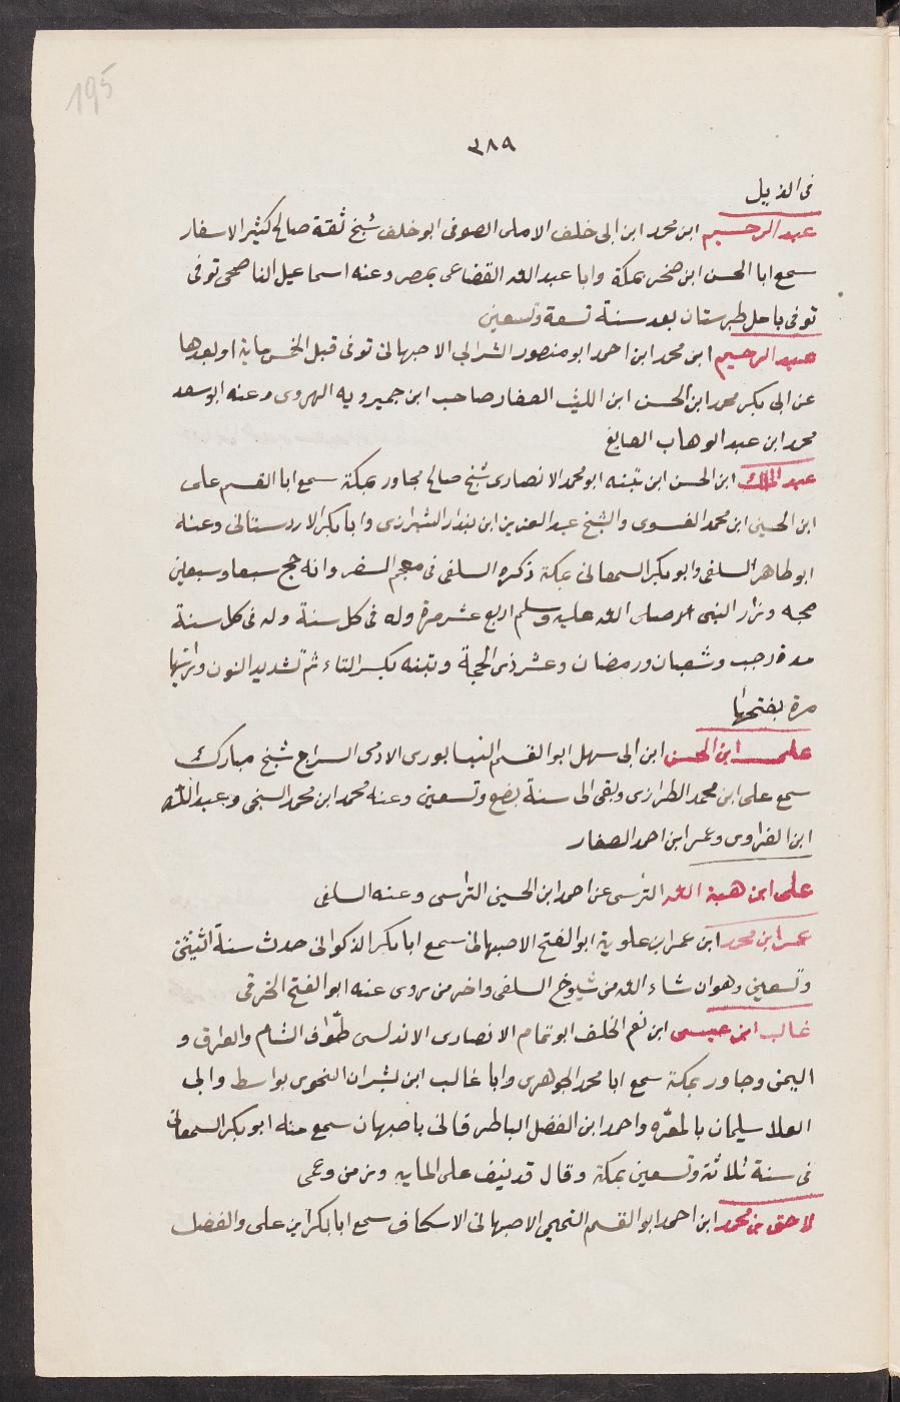 195
٣٨٩
فى الذيل
عبد الرحيم ابن محمد ابن ابى خلف الاملى الصوفى ابو خلف شيخ ثقة صالح كثير الاسفار
سمع ابا الحسن ابن صخر بمكة وابا عبد الله القضاعى بمصر وعنه اسماعيل الناصحى توفى
توفى باحل طبرستان بعد سنة تسعة وتسعين
عبد الرحيم ابن محمد ابن احمد ابو منصور الشرابي الاصبهانى توفى قبل الخمس ماية او بعدها
عن ابى بكر محمد ابن الحسن ابن الليث الصفار صاحب ابن جميرويه الهروى وعنه ابو سعد
محمد ابن عبد الوهاب الصايغ
عبد الملك ابن الحسن ابن بتنه ابو محمد الانصارى شيخ صالح مجاور بمكة سمع ابا القسم على
ابن الحسين ابن محمد الفسوى والشيخ عبد العزيز ابن بندار الشيرازى وابا بكر الاردستانى وعنه
ابو طاهر السلفى وابو بكر السمعانى بمكة ذكره السلفى فى معجم السفر وانه حج سبعا وسبعين
حجه وزار النبى صلى الله عليه وسلم اربع عشر مرة وله فى كل سنة وله فى كل سنة
مدة رجب وشعبان ورمضان وعشر ذى الحجة وبتنه بكسر التاء ثم تشديد النون ورايتها
مرة بفتحها
على ابن الحسن ابن ابى سهل ابو القسم النيسابورى الادمى السراج شيخ مبارك
سمع على ابن محمد الطرازى وبقى الى سنة بضع وتسعين وعنه محمد ابن محمد السنجى وعبد الله
ابن الفراوى وعمر ابن احمد الصفار
على ابن هبة الله الترسى عن احمد ابن الحسين التراسى وعنه السلفى
عمر ابن محمد ابن عمر ابن علوية ابو الفتح الاصبهانى سمع ابا بكر الذكوانى حدث سنة اثنتين
وتسعين وهو ان شاء الله من شيوخ السلفى واخر من روى عنه ابو الفتح الخرقى
غالب ابن عيسى ابن نعم الخلف ابو تمام الانصارى الاندلسى طوّاف الشام والعراق و
اليمن وجاور بمكة سمع ابا محمد الجوهرى وابا غالب ابن بشران النحوى بواسط وابى
العلا سليمان بالمعرّه واحمد ابن الفضل الباطرقانى باصبهان سمع منه ابو بكر السمعانى
فى سنة ثلاثة وتسعين بمكة وقال قد نيف على المايه وزمن وعمى
لاحق بن محمد ابن احمد ابو القسم التميمى الاصبهانى الاسكاف سمع ابا بكر ابن على والفضل